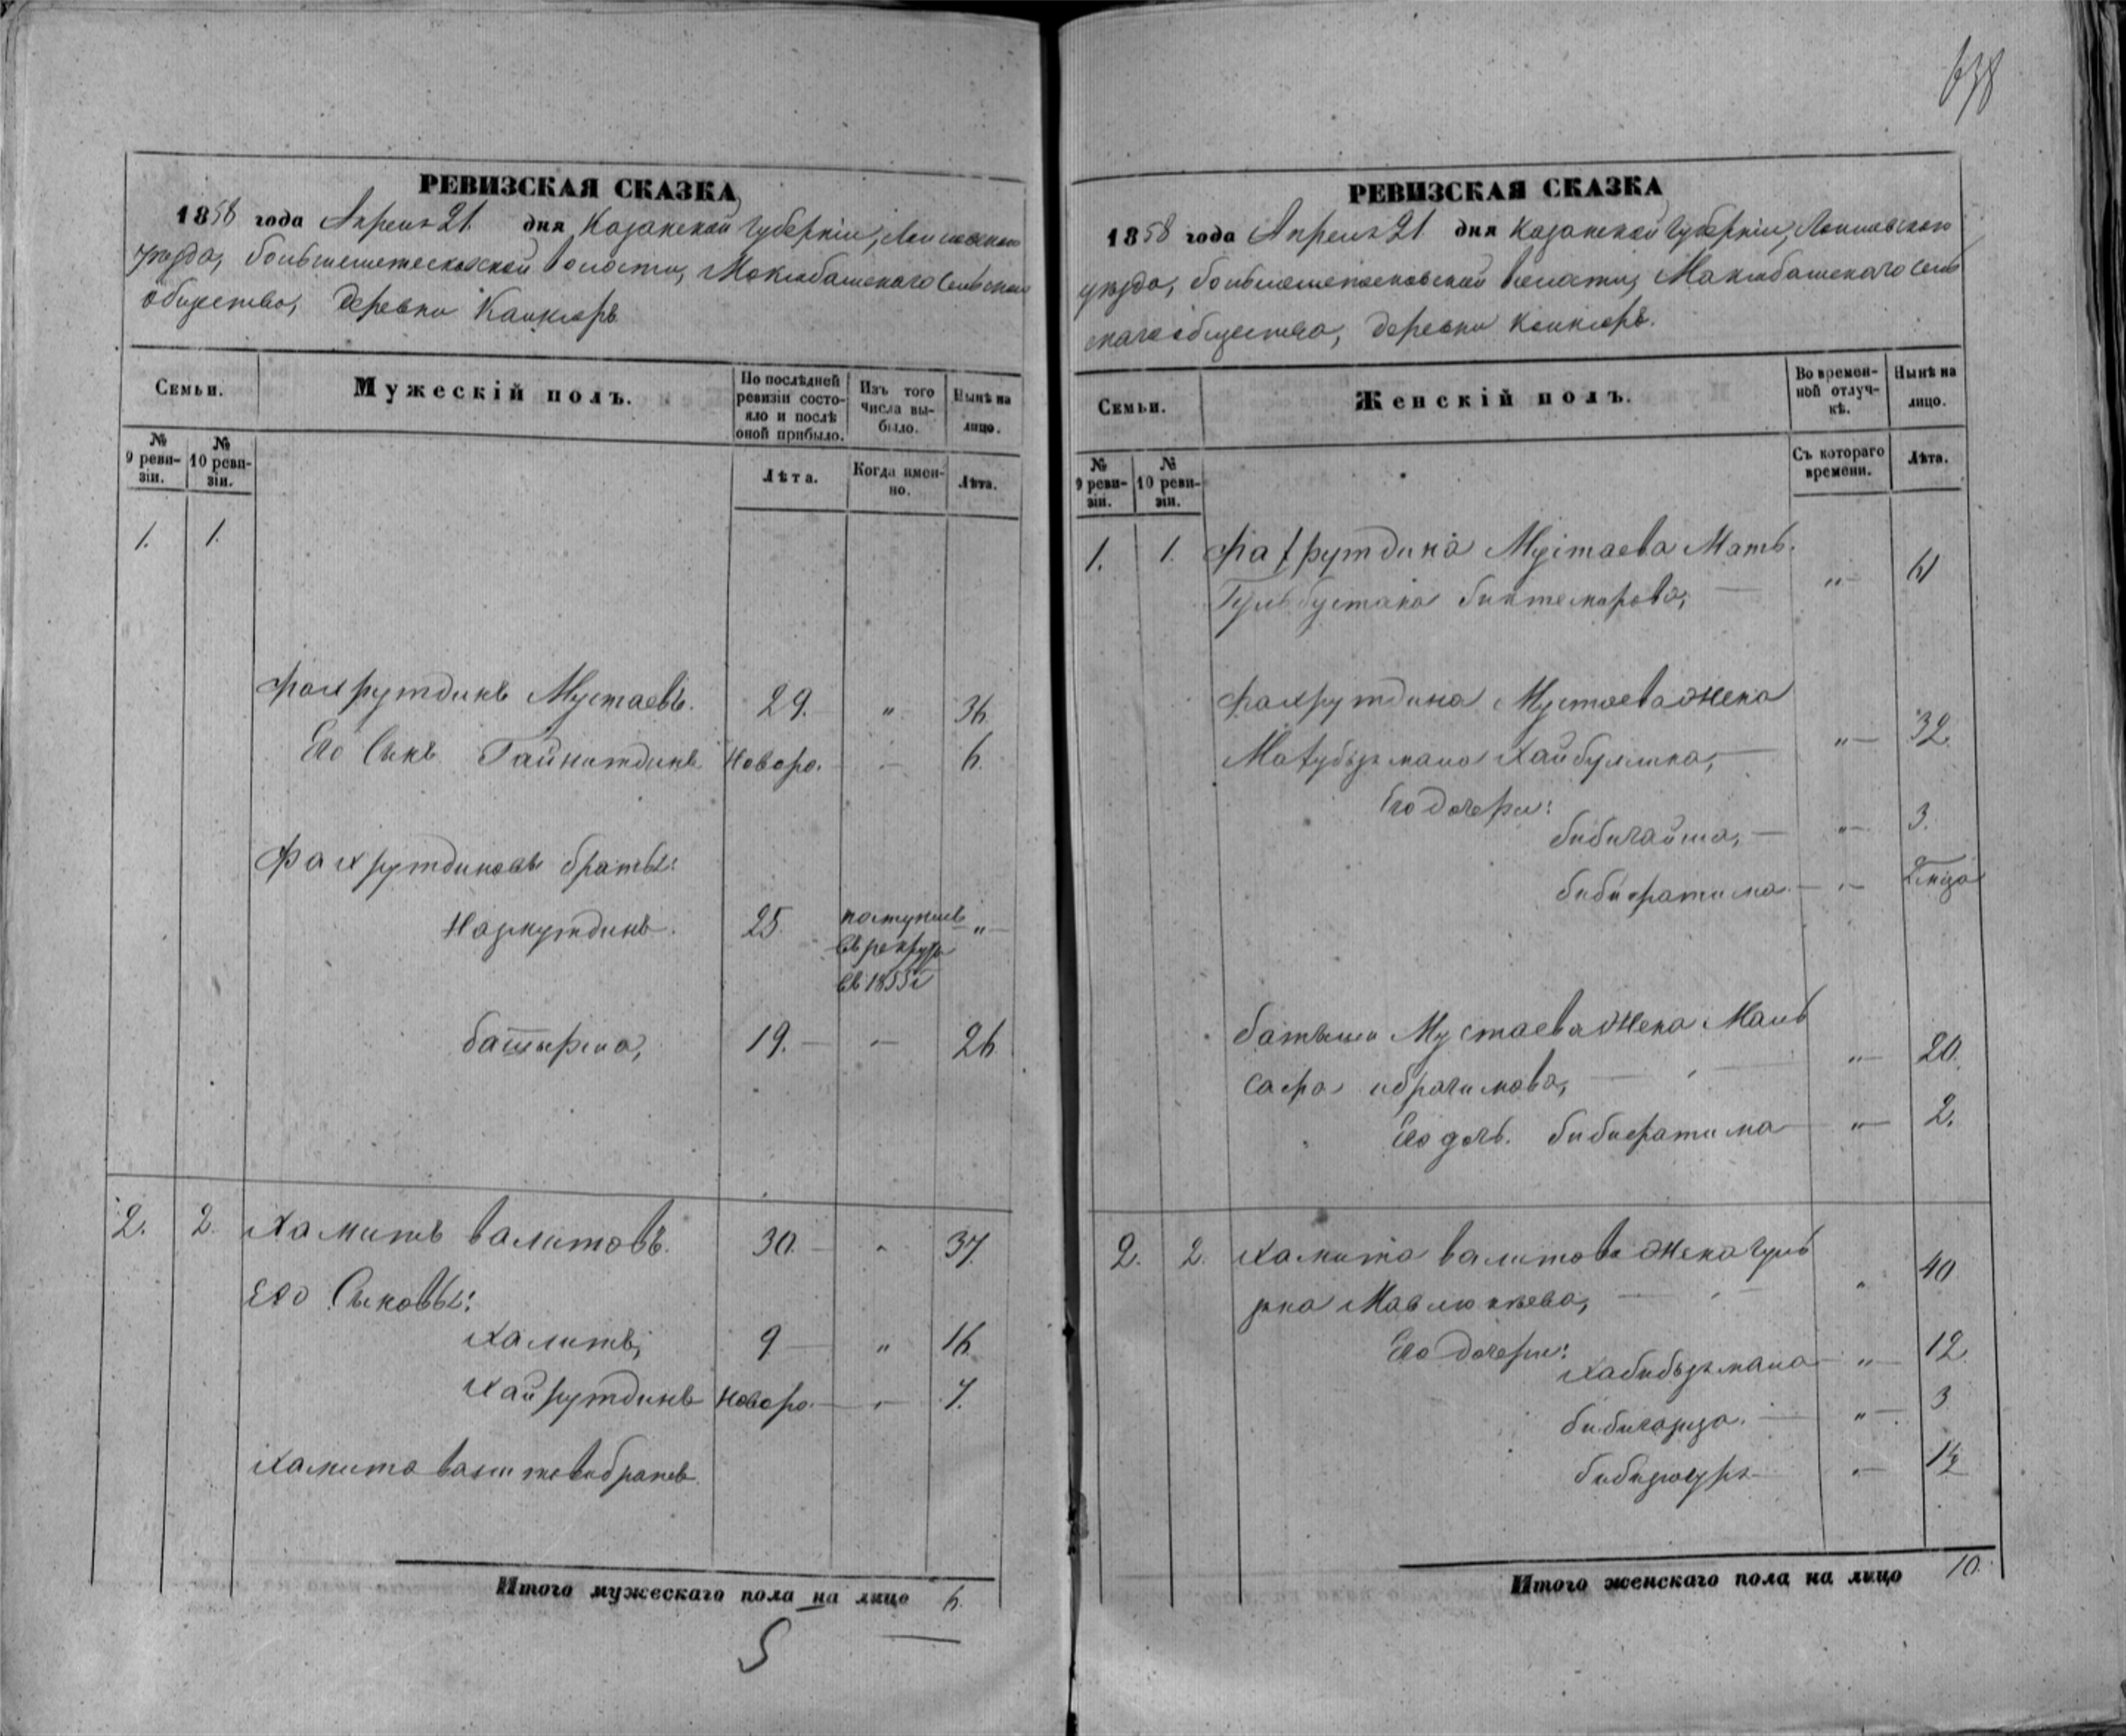 638
РЕВИЗСКАЯ СКАЗКА
1858 года Апреля 21 дня Казанской Губерніи, Лаишевскаго
уѣзда, большемете волости, Маклюбашскаго Сельскаго
общества, деревни
Семьи.
Мужескій полъ.
По послѣдней ревизіи состояло и послѣ оной прибыло.
Изъ того числа выбыло.
Нынѣ на лицо.
№ 9 ревизіи.
№ 10 ревизіи.
Лѣта.
Когда именно.
Лѣта.
1. 1.
Фахрутдинъ Мустаевъ. 29. " 36
Его Сынъ Гайнитдинъ Новоро. - 6.
Фахрутдиновы братья:
25. поступилъ "
въ рекруты
въ 1855 г
19. - 26
2. 2. Хамитъ Валитовъ. 30. " 37.
Его Сыновья:
Халитъ, 9 " 16
Хайрутдинъ Новоро. " 7.
Хамита Валитова братъ
Итого мужескаго пола на лицо 6.
5
РЕВИЗСКАЯ СКАЗКА
1858 года Апреля 21 дня Казанской Губерніи, Лаишевскаго
уѣзда, волости, Маклюбашскаго Сель
скаго общества, деревни
Семьи.
Женскій полъ.
Во временной отлучкѣ.
Нынѣ на лицо.
№ 9 ревизіи.
№ 10 ревизіи.
Съ котораго времени.
Лѣта.
1. 1. Фахрутдина Мустаева Мать.
Гульбустана биктемирова, " 61
Фахрутдина Мустаева жена
Хайбуллина, " 32.
Его дочери:
бибигайша, " 3.
бибифатима "
Мустаева жена Мань
сафа ибрагимова, " 20.
Его дочь. бибифатима " 2.
2. 2. Хамита Валитова жена Гуль
Мавлюкеева, " 40
Его дочери:
Хабибьзямала " 12
" 3
" 1½
Итого женскаго пола на лицо 10.